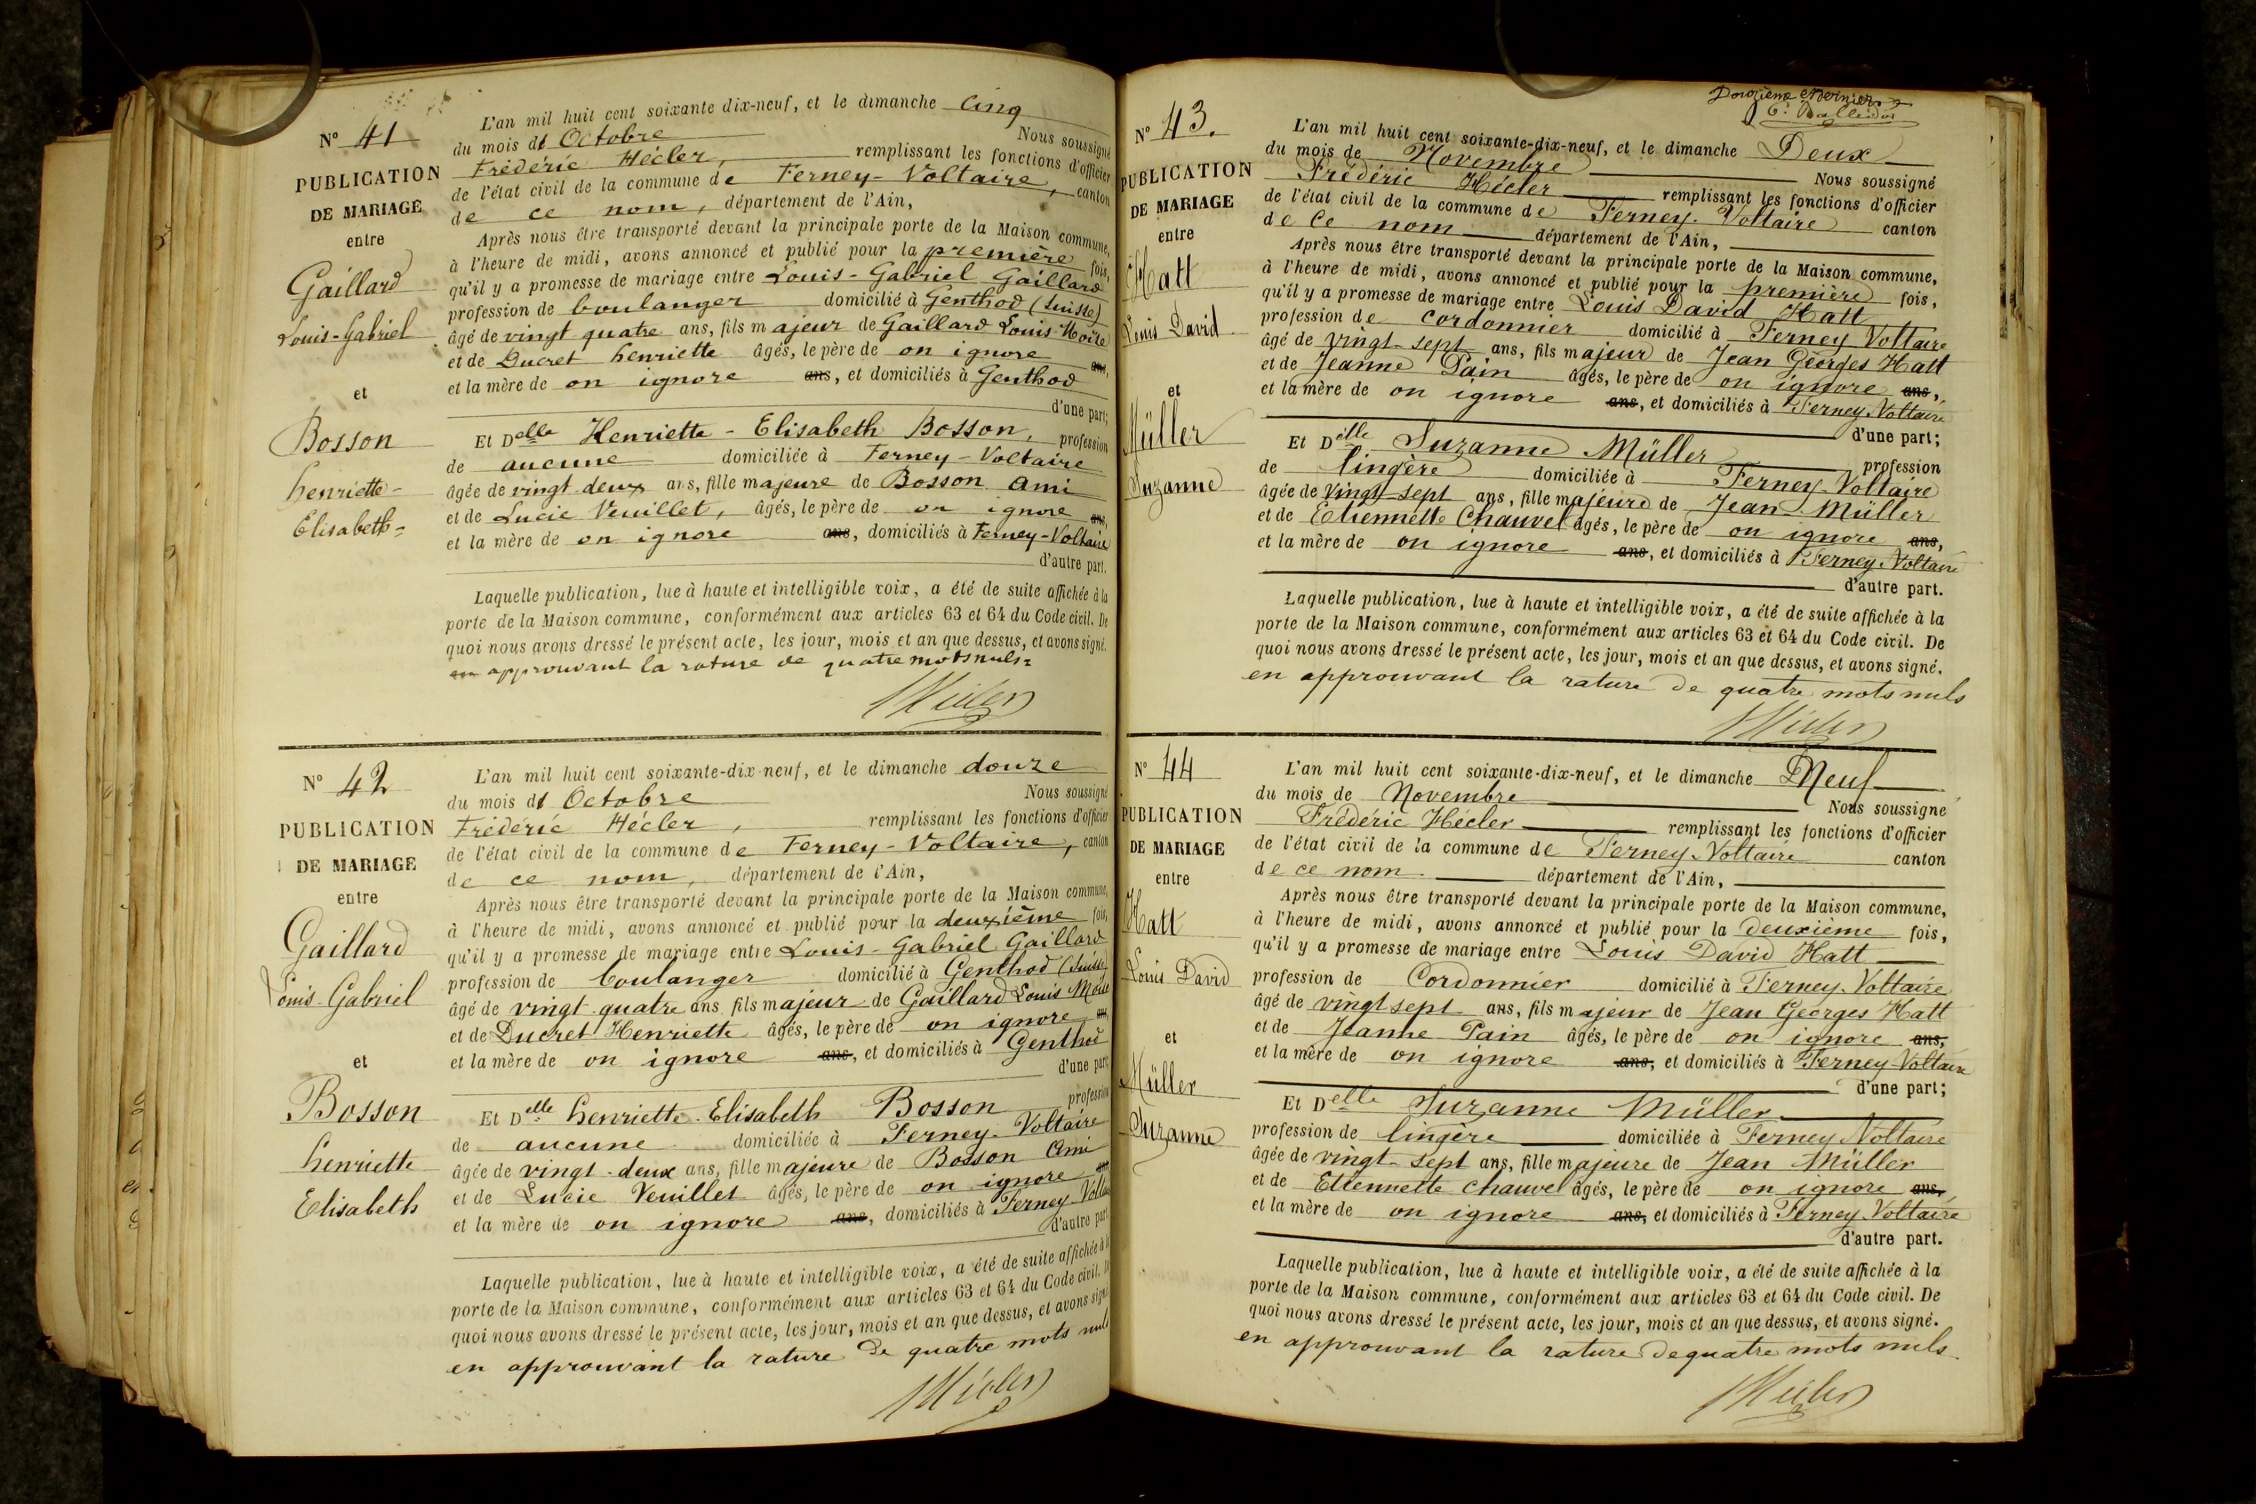 N° 41
PUBLICATION
DE MARIAGE
entre
Gaillard
Louis-Gabriel
et
Bosson
henriette-
Elisabeth=
L'an mil huit cent soixante dix-neuf, et le dimanche cinq
du mois d' Octobre Nous soussigné
Frédéric Hécler, remplissant les fonctions d'officier
de l'état civil de la commune de Ferney-Voltaire, canton
de ce nom, département de l'Ain,
Après nous être transporté devant la principale porte de la Maison commune,
à l'heure de midi, avons annoncé et publié pour la première fois,
qu'il y a promesse de mariage entre Louis-Gabriel Gaillard
profession de boulanger domicilié à Genthod (Suisse)
âgé de vingt quatre ans, fils majeur de Gaillard Louis
et de Ducret henriette âgés, le père de on ignore ans,
et la mère de on ignore ans, et domiciliés à Genthod
d'une part;
Et Delle Henriette-Elisabeth Bosson, profession
de aucune domiciliée à Ferney-Voltaire
âgée de vingt deux ans, fille majeure de Bosson Ami
et de Lucie Veuillet, âgés, le père de on ignore ans,
et la mère de on ignore ans, domiciliés à Ferney-Voltaire
d'autre part.
Laquelle publication, lue à haute et intelligible voix, a été de suite affichée à la
porte de la Maison commune, conformément aux articles 63 et 64 du Code civil. De
quoi nous avons dressé le présent acte, les jour, mois et an que dessus, et avons signé.
en approuvant la rature de quatre mots nuls=
Hécler
N° 42
PUBLICATION
DE MARIAGE
entre
Gaillard
Louis Gabriel
et
Bosson
henriette
Elisabeth
L'an mil huit cent soixante-dix-neuf, et le dimanche douze
du mois d' Octobre Nous soussigné
Frédéric Hécler, remplissant les fonctions d'officier
de l'état civil de la commune de Ferney-Voltaire, canton
de ce nom, département de l'Ain,
Après nous être transporté devant la principale porte de la Maison commune,
à l'heure de midi, avons annoncé et publié pour la deuxième fois,
qu'il y a promesse de mariage entre Louis-Gabriel Gaillard
profession de boulanger domicilié à Genthod (Suisse)
âgé de vingt quatre ans fils majeur de Gaillard Louis
et de Ducret Henriette âgés, le père de on ignore ans,
et la mère de on ignore ans, et domiciliés à Genthod
d'une part
Et Delle henriette-Elisabeth Bosson profession
de aucune domiciliée à Ferney-Voltaire
âgée de vingt-deux ans, fille majeure de Bosson Ami
et de Lucie Veuillet âgés, le père de on ignore ans
et la mère de on ignore ans, domiciliés à Ferney-Voltaire
d'autre part
Laquelle publication, lue à haute et intelligible voix, a été de suite affichée à la
porte de la Maison commune, conformément aux articles 63 et 64 du Code civil. De
quoi nous avons dressé le présent acte, les jour, mois et an que dessus, et avons signé
en approuvant la rature de quatre mots nuls
Hécler
Douzième et dernier
N° 43.
PUBLICATION
DE MARIAGE
entre
Hatt
Louis David
et
Müller
Suzanne
L'an mil huit cent soixante-dix-neuf, et le dimanche Deux
du mois de Novembre Nous soussigné
Frédéric Hécler remplissant les fonctions d'officier
de l'état civil de la commune de Ferney-Voltaire canton
de ce nom département de l'Ain,
Après nous être transporté devant la principale porte de la Maison commune,
à l'heure de midi, avons annoncé et publié pour la première fois,
qu'il y a promesse de mariage entre Louis David Hatt
profession de cordonnier domicilié à Ferney Voltaire
âgé de vingt-sept ans, fils majeur de Jean Georges Hatt
et de Jeanne Pain âgés, le père de on ignore ans,
et la mère de on ignore ans, et domiciliés à Ferney-Voltaire
d'une part;
Et Delle Suzanne Müller profession
de lingère domiciliée à Ferney-Voltaire
âgée de vingt sept ans, fille majeure de Jean Müller
et de Etiennette Chauvel âgés, le père de on ignore ans,
et la mère de on ignore ans, et domiciliés à Ferney-Voltaire
d'autre part.
Laquelle publication, lue à haute et intelligible voix, a été de suite affichée à la
porte de la Maison commune, conformément aux articles 63 et 64 du Code civil. De
quoi nous avons dressé le présent acte, les jour, mois et an que dessus, et avons signé.
en approuvant la rature de quatre mots nuls
Hécler
N° 44
PUBLICATION
DE MARIAGE
entre
Hatt
Louis David
et
Müller
Suzanne
L'an mil huit cent soixante-dix-neuf, et le dimanche Neuf
du mois de Novembre Nous soussigné
Frédéric Hécler remplissant les fonctions d'officier
de l'état civil de la commune de Ferney-Voltaire canton
de ce nom département de l'Ain,
Après nous être transporté devant la principale porte de la Maison commune,
à l'heure de midi, avons annoncé et publié pour la deuxième fois,
qu'il y a promesse de mariage entre Louis David Hatt
profession de Cordonnier domicilié à Ferney-Voltaire
âgé de vingt sept ans, fils majeur de Jean Georges Hatt
et de Jeanne Pain âgés, le père de on ignore ans,
et la mère de on ignore ans, et domiciliés à Ferney Voltaire
d'une part;
Et Delle Suzanne Müller
profession de lingère domiciliée à Ferney Voltaire
âgée de vingt-sept ans, fille majeure de Jean Müller
et de Etiennette chauvel âgés, le père de on ignore ans,
et la mère de on ignore ans, et domiciliés à Ferney-Voltaire
d'autre part.
Laquelle publication, lue à haute et intelligible voix, a été de suite affichée à la
porte de la Maison commune, conformément aux articles 63 et 64 du Code civil. De
quoi nous avons dressé le présent acte, les jour, mois et an que dessus, et avons signé.
en approuvant la rature de quatre mots nuls
Hécler